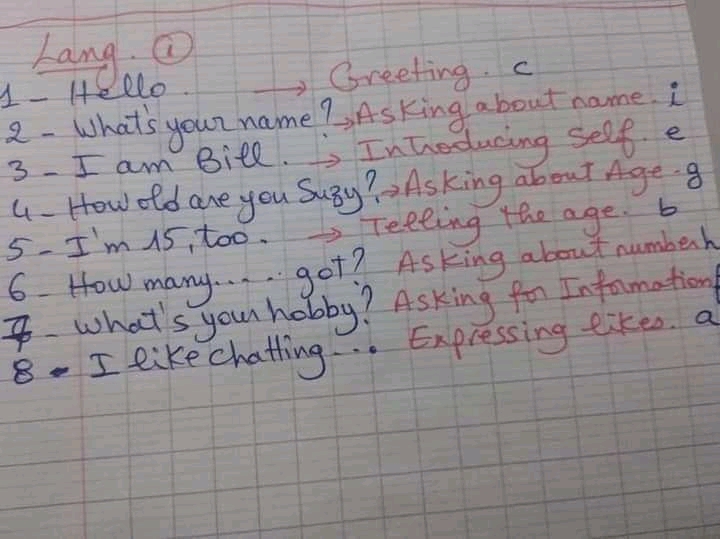 Lang. 1
1 - Hello. → Greeting. c
2 - What's your name? → Asking about name. i
3 - I am Bill. → Introducing Self. e
4 - How old are you Suzy? → Asking about Age. g
5 - I'm 15, too. → Telling the age. b
6 - How many..... got? Asking about number h
7 - What's your hobby? Asking for Information f
8 - I like chatting... Expressing likes. a